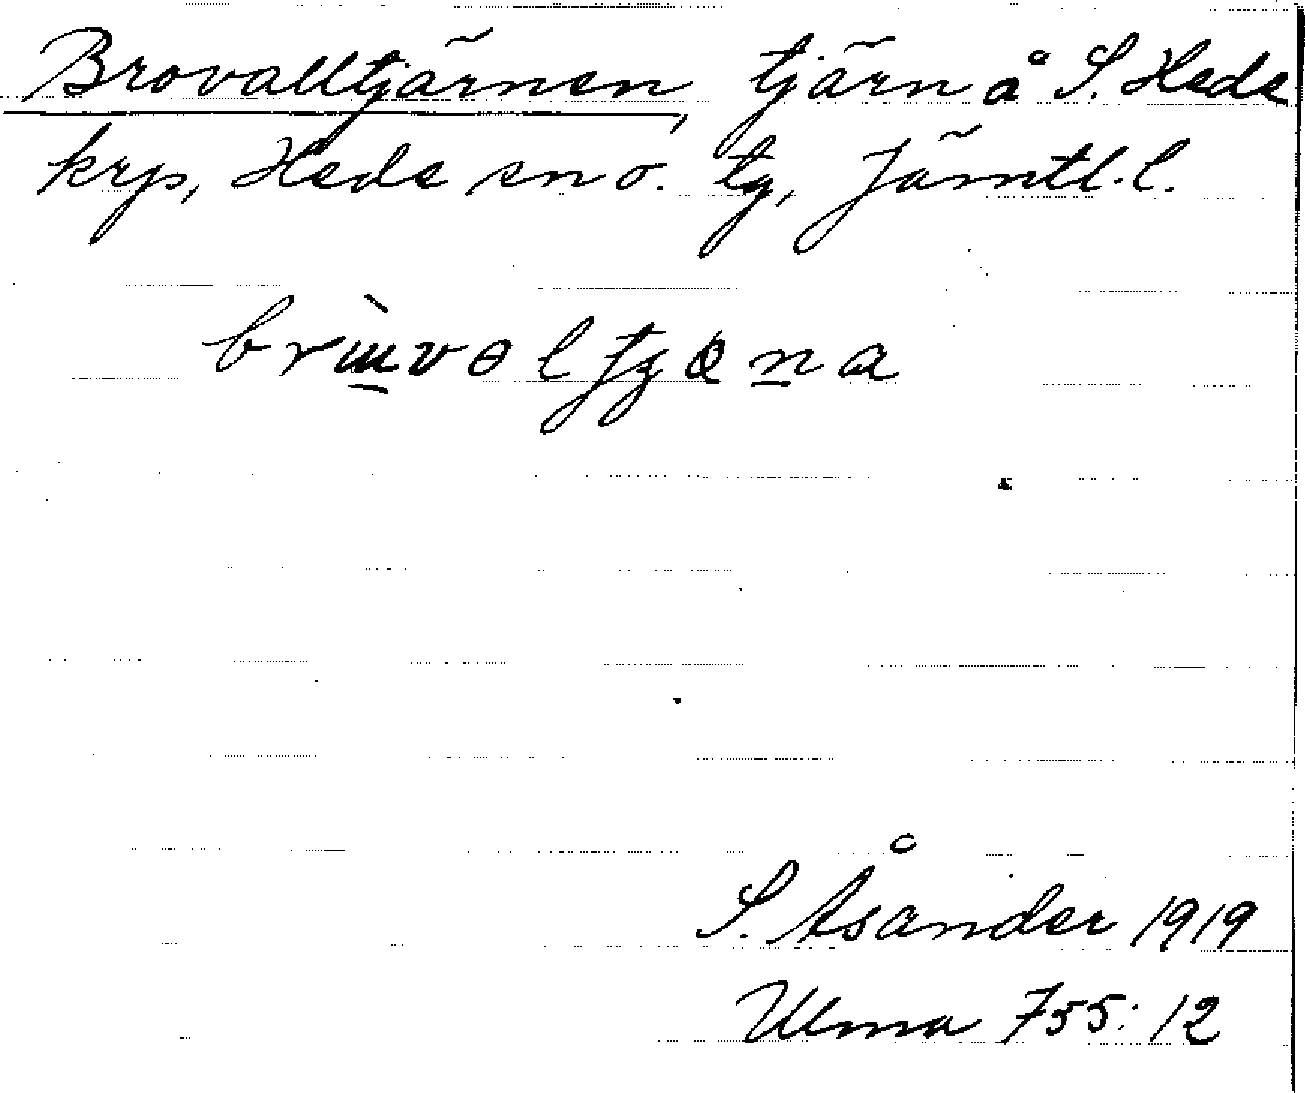 Brovalltjärnen, tjärn å S. Hede
krp, Hede sn o. tg, Jämtl. l.
S. Åsander 1919
Ulma 755: 12